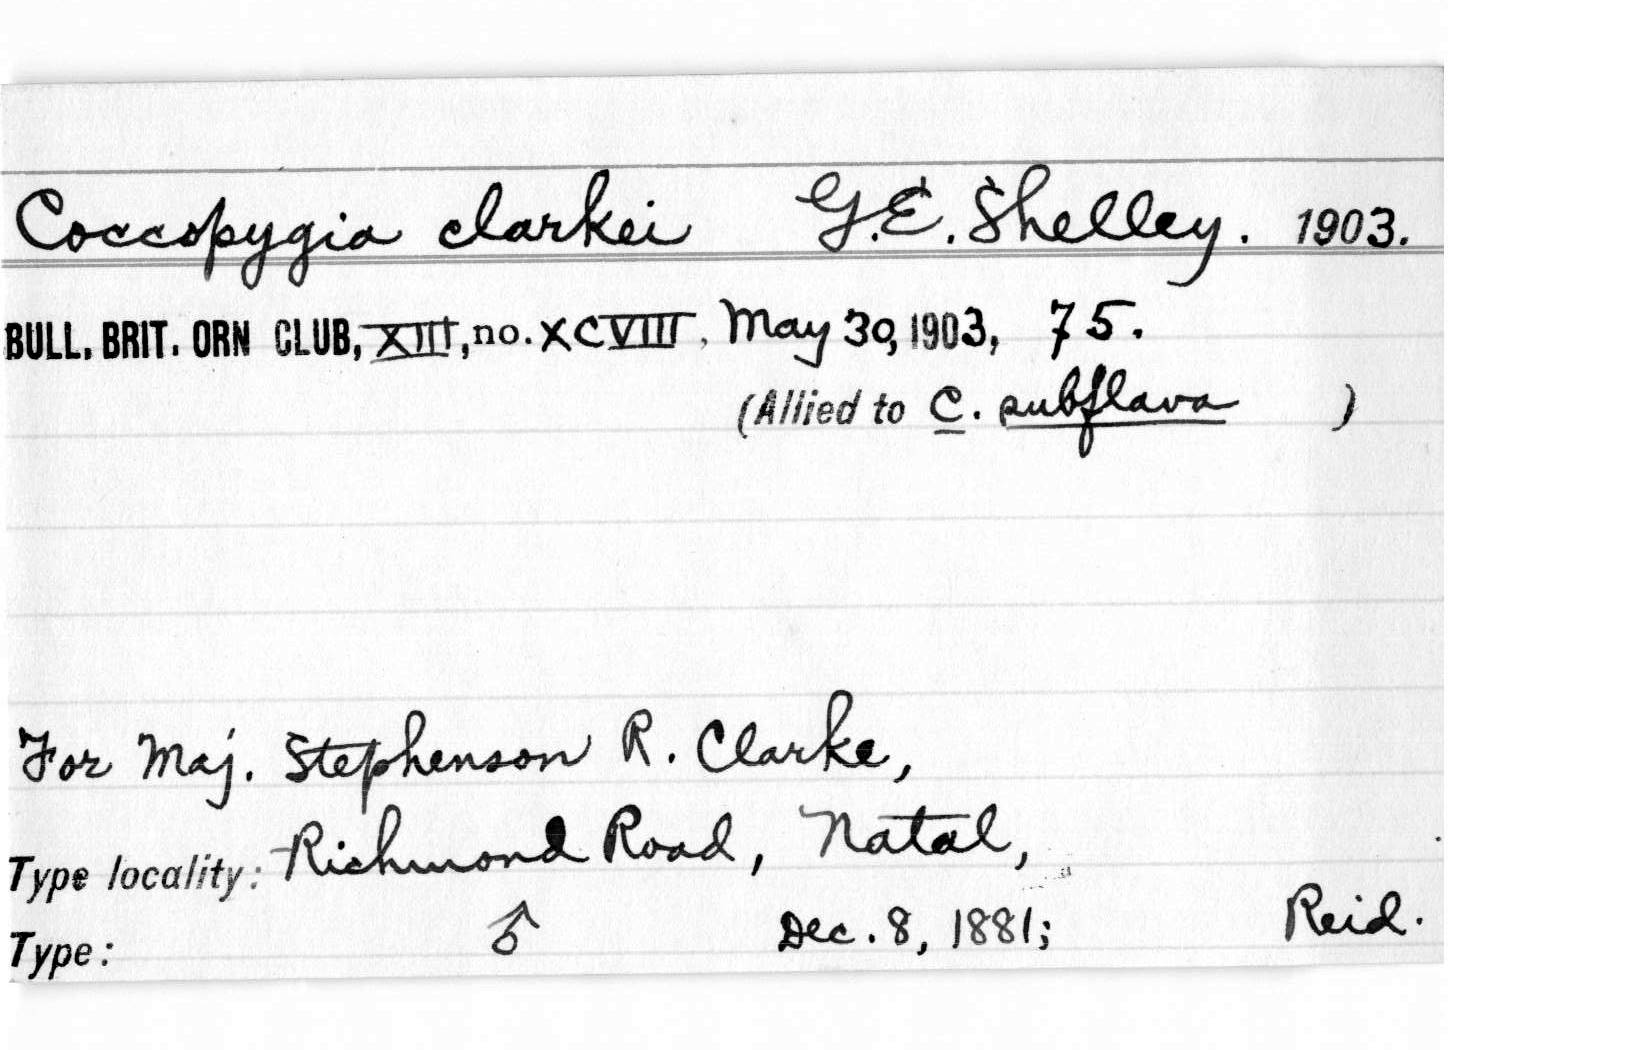 Coccopygia clarkei G.E. Shelley. 1903.
BULL. BRIT. ORN CLUB, XIII, no. XCVIII, May 30, 1903, 75.
(Allied to C. subflava )
For Maj. Stephenson R. Clarke,
Type locality: Richmond Road, Natal,
Type: ♂ Dec. 8, 1881; Reid.